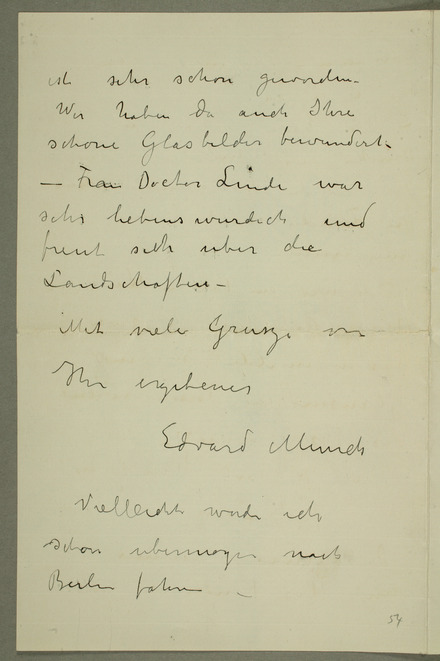 ist sehr schon geworden –
Wir haben da auch Ihre
schone Glasbilder bewundert –
– Frau Doctor Linde war
sehr liebenswurdich und
freut sich uber die
Landschaften –
Mit viele Grusze von
Ihr ergebener
Edvard Munch
Vielleicht werde ich
schon ubermorgen nach
Berlin fahren –
54